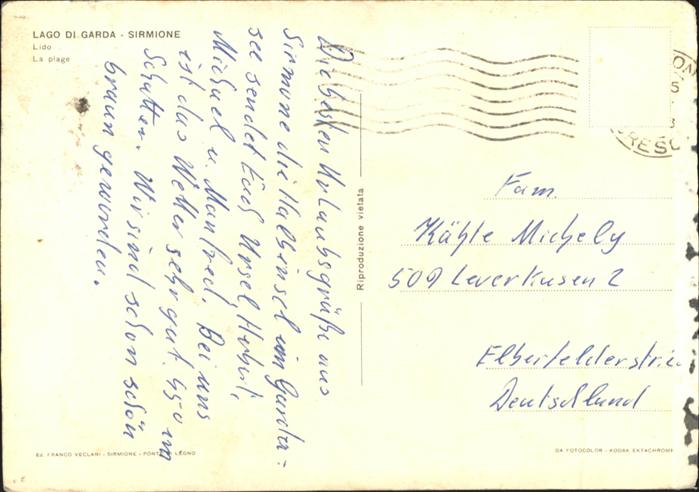 LAGO DI GARDA - SIRMIONE
Lido
La plage
Die besten Urlaubsgrüße aus
Sirmione die Halbinsel im Garda=
see sendet Euch Ursel Herbert,
Michael u. Manfred. Bei uns
ist das Wetter sehr gut. 45° im
Schatten. Wir sind schon schön
braun geworden.
Riproduzione vietata
Fam.
Käthe Michely
509 Leverkusen 2
Elberfelderstr.
Deutschland
Ed. FRANCO VECLANI - SIRMIONE - PONTE LEGNO
DA FOTOCOLOR - KODAK EKTACHROME